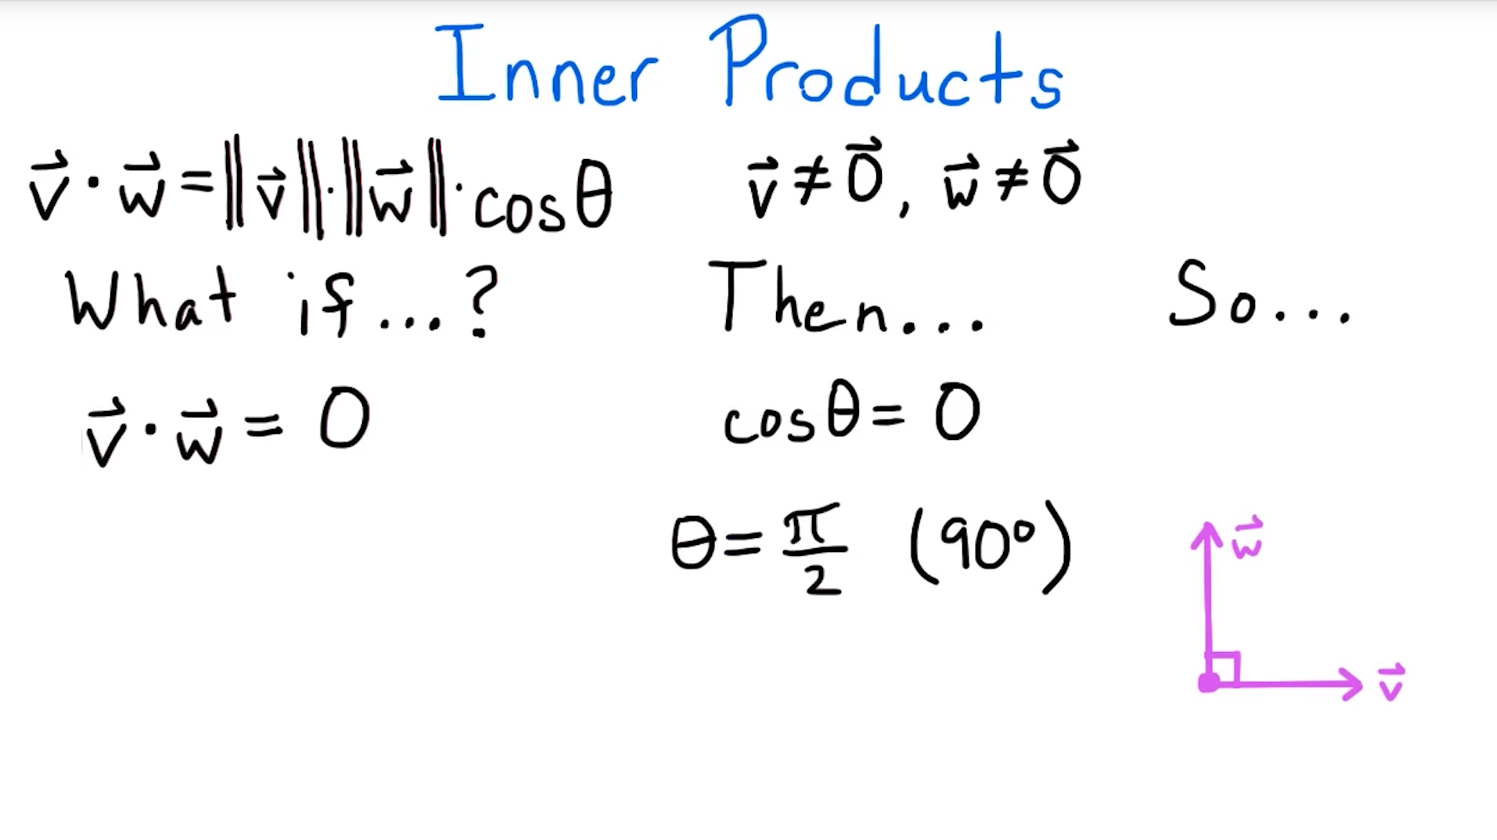 Inner Products
v⃗ · w⃗ = ||v⃗|| · ||w⃗|| · cosθ    v⃗ ≠ 0⃗, w⃗ ≠ 0⃗
What if...?    Then...    So...
v⃗ · w⃗ = 0    cosθ = 0
θ = π/2 (90°)
w⃗
v⃗